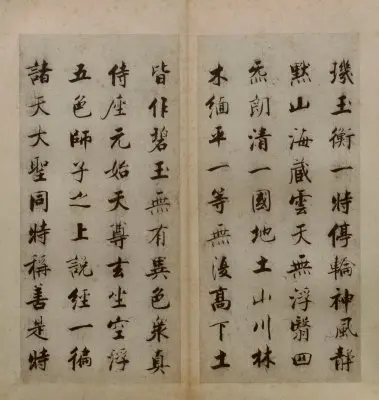 璣玉衡一時停輪神風靜
黙山海藏雲天無浮翳四
炁朗清一國地土山川林
木緬平一等無復高下土
皆作碧玉無有異色衆真
侍座元始天尊玄坐空浮
五色師子之上說經一徧
諸天大聖同時稱善是時